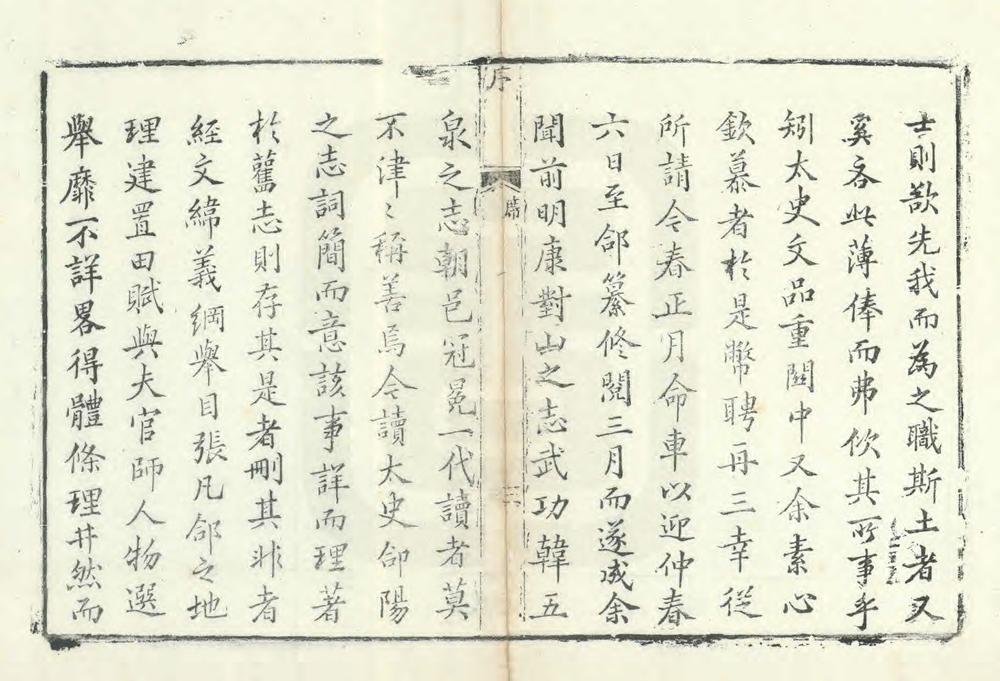 士則欲先我而為之職斯土者又
奚吝此薄俸而弗佽其所事乎
矧太史文品重關中又余素心
欽慕者於是幣聘再三幸從
所請今春正月命車以迎仲春
六日至郃纂修閱三月而遂成余
聞前明康對山之志武功韓五
泉之志朝邑冠冕一代讀者莫
不津〻稱善焉今讀太史郃陽
之志詞簡而意該事詳而理著
於舊志則存其是者刪其非者
經文緯義綱舉目張凡郃之地
理建置田賦與夫官師人物選
舉靡不詳畧得體條理井然而
序